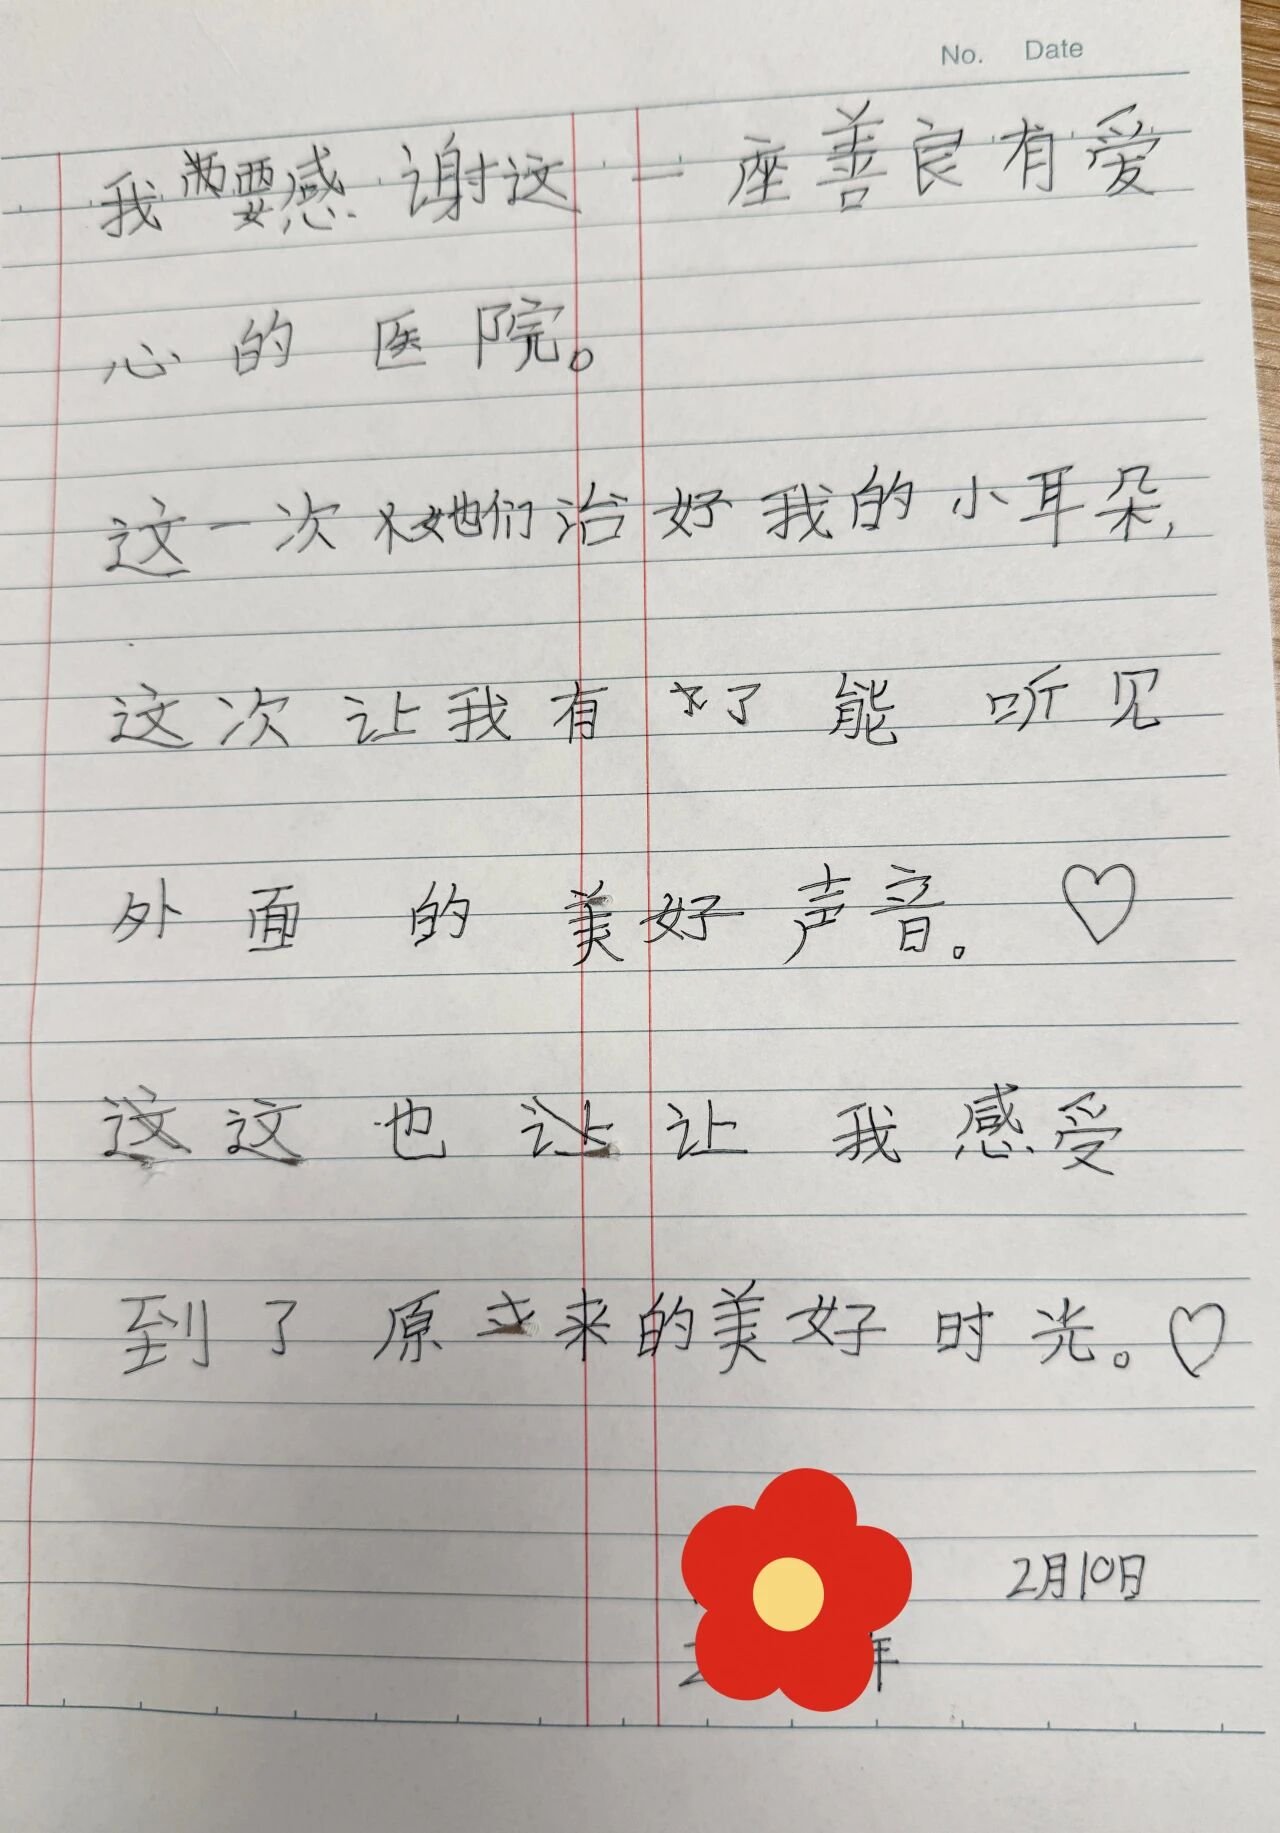 No. Date
我要感谢这一座善良有爱
心的医院。
这一次她们治好我的小耳朵,
这次让我有了能听见
外面的美好声音。♡
这也让我感受
到了原来的美好时光。♡
2月10日
年